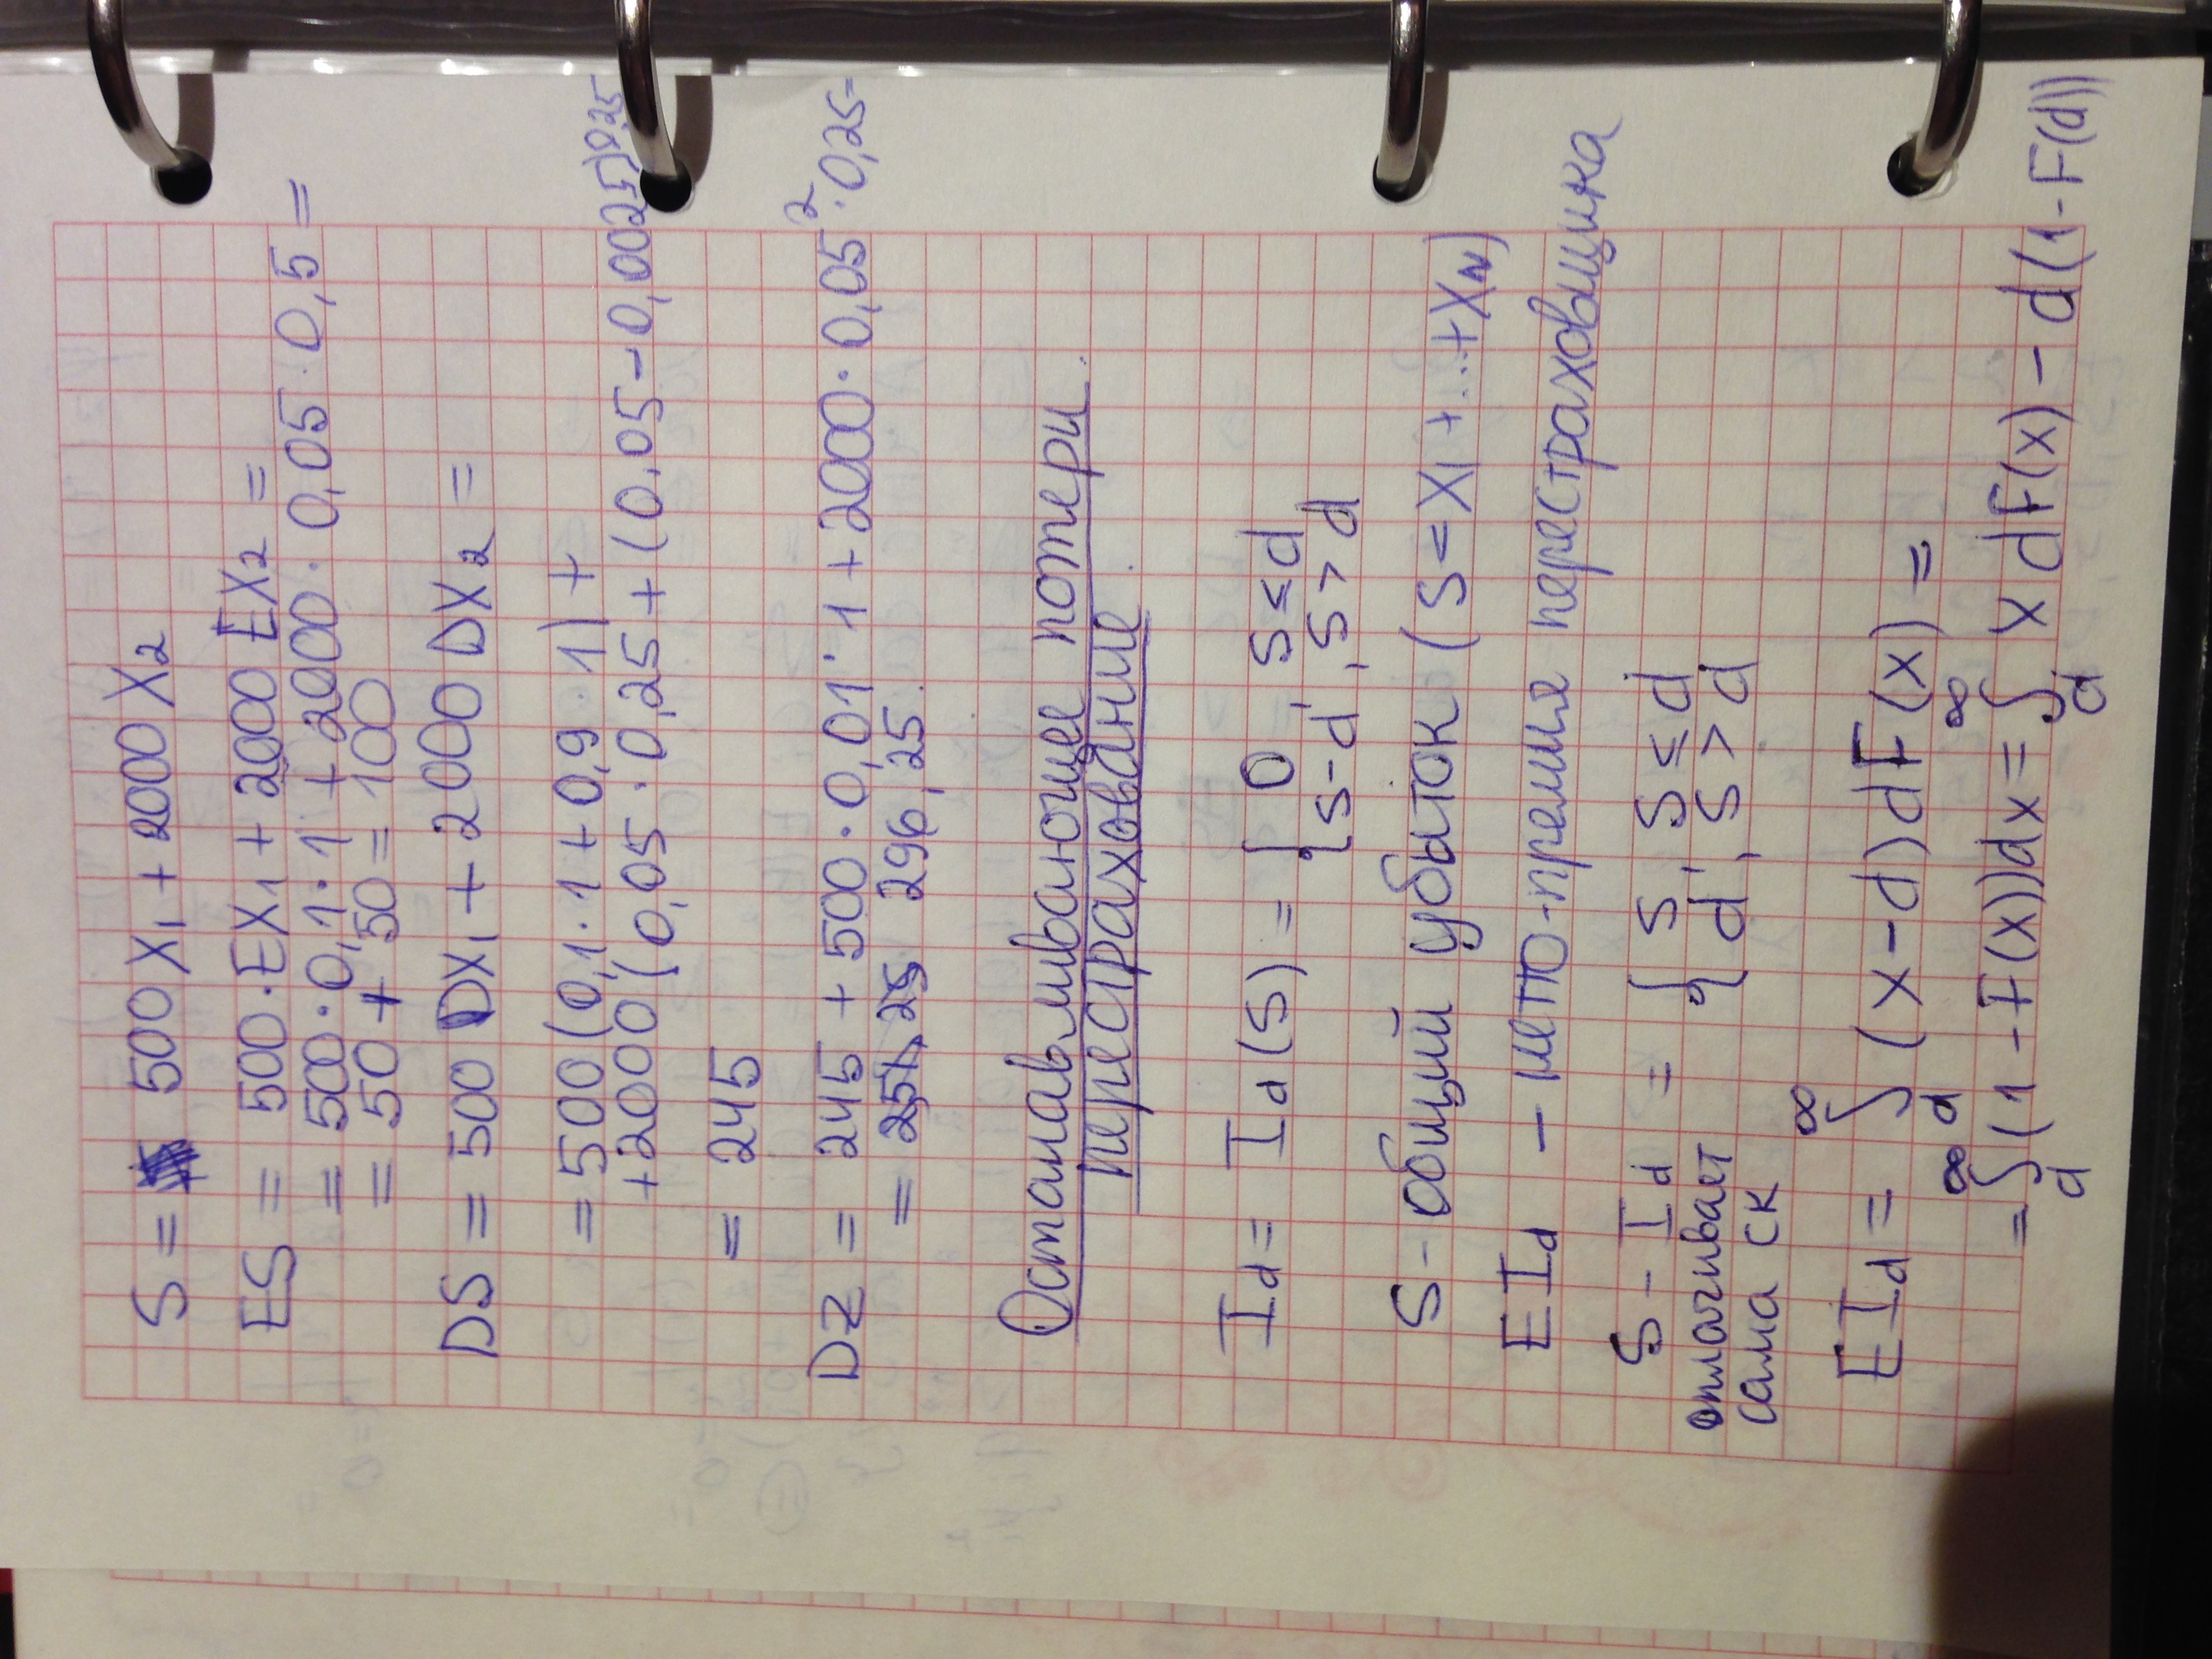 S = 500 X₁ + 2000 X₂
ES = 500 · EX₁ + 2000 EX₂ =
= 500 · 0,1 · 1 + 2000 · 0,05 · 0,5 =
= 50 + 50 = 100
DS = 500 DX₁ + 2000 DX₂ =
= 500 (0,1 · 1 + 0,9 · 1) +
+2000 (0,05 · 0,25 + (0,05 - 0,0025)0,25
= 245
DZ = 245 + 500 · 0,01 · 1 + 2000 · 0,05² · 0,25 =
= 251,25 296,25.
Останавливающее потери
перестрахование.
I_d = I_d (S) = { 0 , S ≤ d
S - d , S > d
S - общий убыток (S = X₁ + ... + X_N)
E I_d - нетто-премия перестраховщика
S - I_d = { S , S ≤ d
d , S > d
оплачивает
сама СК
E I_d = ∫_d^∞ (x - d) dF(x) =
= ∫_d^∞ (1 - F(x)) dx = ∫_d^∞ x dF(x) - d(1 - F(d))